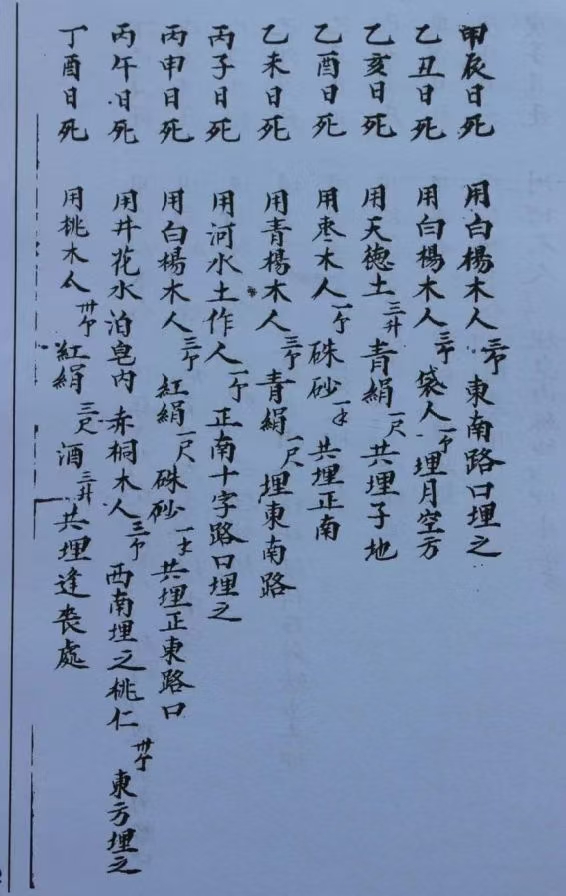 甲辰日死 用白楊木人三个 東南路口埋之
乙丑日死 用白楊木人三个 袋人一个 埋月空方
乙亥日死 用天德土三升 青絹一尺 共埋子地
乙酉日死 用枣木人一个 硃砂一手 共埋正南
乙未日死 用青楊木人三个 青絹一尺 埋東南路
丙子日死 用河水土作人一个 正南十字路口埋之
丙申日死 用白楊木人三个 紅絹一尺 硃砂一手 共埋正東路口
丙午日死 用井花水泊皂内 赤桐木人三个 西南埋之桃仁卅个 東方埋之
丁酉日死 用桃木人卅个 紅絹三尺 酒三升 共埋逢丧處